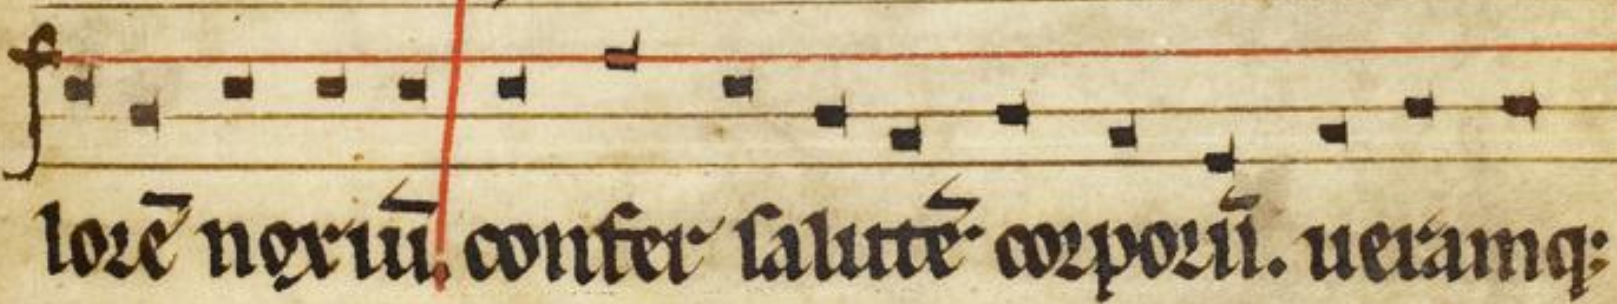 lorē noxiū. confer salutē corporū. ueramq;